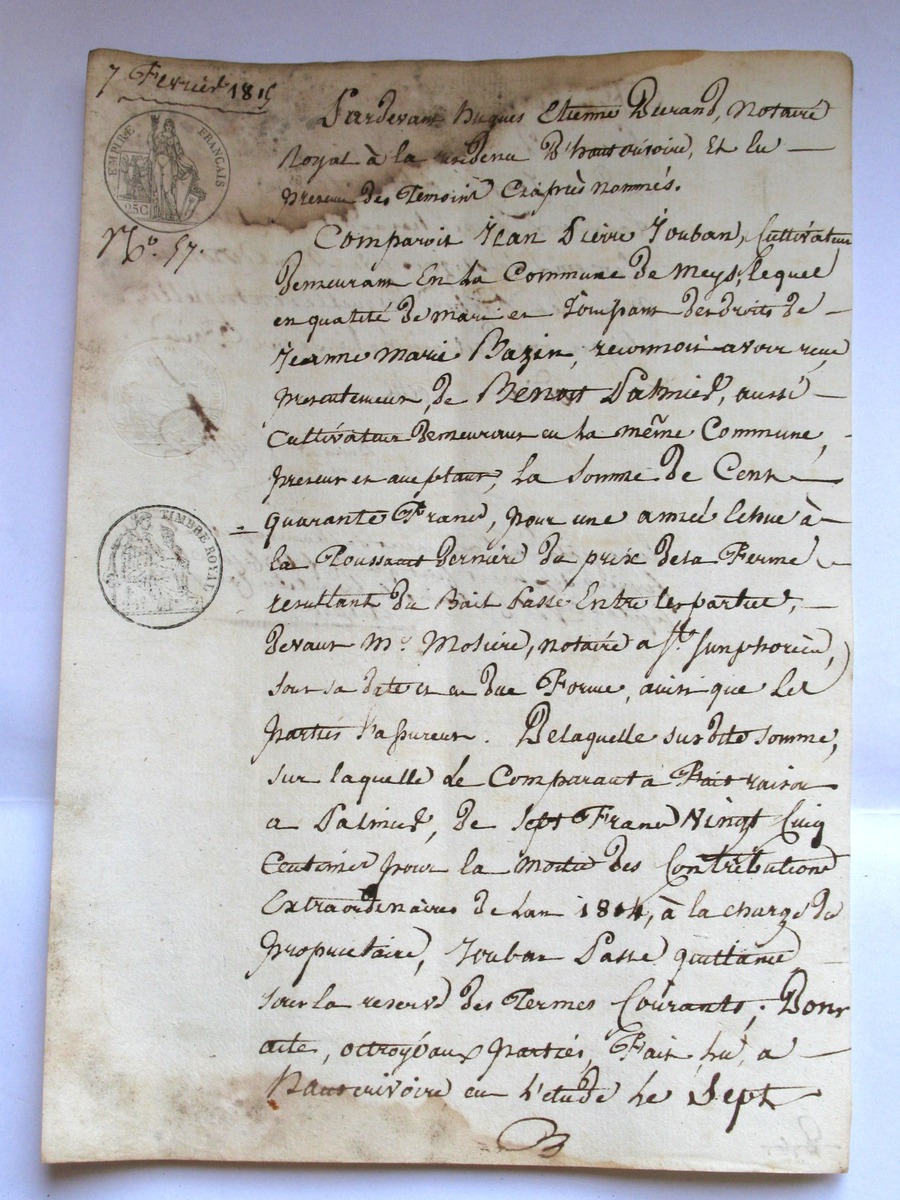 7 Février 1815
EMPIRE FRANÇAIS
25C
N.º 57.
TIMBRE ROYAL
Pardevant Hugues Etienne Durand, Notaire
Royal à la residence D'hauterivoire, Et en
presence des Temoins Ciaprès nommés.
Comparoit Jean Pierre Jouban, Cultivateur
demeurant En la Commune de Meys, lequel
en qualité de mari et des droits de
Jeanne Marie Bazin, reconnoit avoir reçu
presentement, de Benoit Palmier, aussi
Cultivateur demeurant en la même Commune,
present et acceptant, la somme de Cent
quarante Francs, pour une année echue à
la Toussaint derniere du prix de la Ferme
resultant du Bail Passé Entre les parties,
devant Mr. Moliere, notaire a St. Simphorien,
sous sa date et en due Forme, ainsi que les
parties l'assurent. De laquelle susdite somme,
sur laquelle Le Comparant a Fait raison
a Palmier, de Sept Francs Vingt Cinq
Centimes pour la Moitié des Contributions
Extraordinaires de Lan 1814, à la charge du
Proprietaire, Jouban Passe quittance
sous la reserve des Termes Courants; Dont
acte, octroyé aux parties, Fait, Lu, a
Hauterivoire en L'etude Le Sept